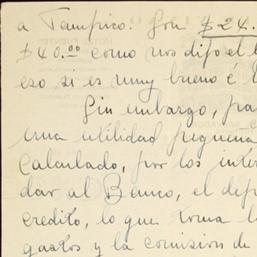 a Tampico. Son $24.
$40.00 como nos dijo el
eso si es muy bueno é
Sin embargo, pa
una utilidad pequeña
calculado, por los inter
dar al Banco, el dep
credito, lo que toma l
gastos y la comision de